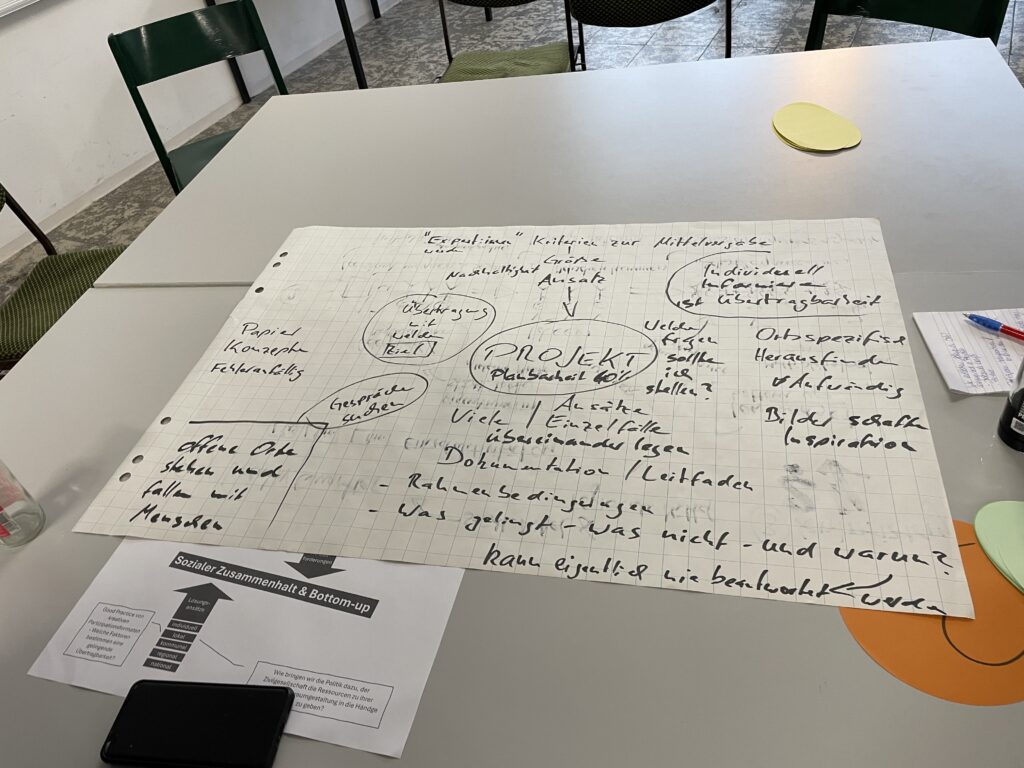 "Expert:innen" Kriterien zur Mittelvergabe
Nachhaltigkeit
Größe
Ansatz
Individuell
ist Übertragbarkeit
Übertragung
mit
welchem
Ziel
PROJEKT
Planbarkeit 60%
Welche
fragen
sollte
ich
stellen?
Ortsspezifisch
Herausfinden
Aufwändig
Bilder schaffen
Inspiration
Papier
Konzepte
Fehleranfällig
Gespräche
suchen
offene Orte
stehen und
fallen mit
Menschen
Viele / Ansätze
Einzelfälle
übereinander legen
Dokumentation / Leitfaden
- Rahmenbedingungen
- Was gelingt - was nicht - und warum?
kann eigentlich nie beantwortet werden
Sozialer Zusammenhalt & Bottom-up
Lösungs-
ansätze
individuell
lokal
kommunal
regional
national
Good Practice von
kreativen
Partizipationsformaten
- Welche Faktoren
bestimmen eine
gelingende
Übertragbarkeit?
Wie bringen wir die Politik dazu, der
Zivilgesellschaft die Ressourcen zu ihrer
raumgestaltung in die Hände
zu geben?